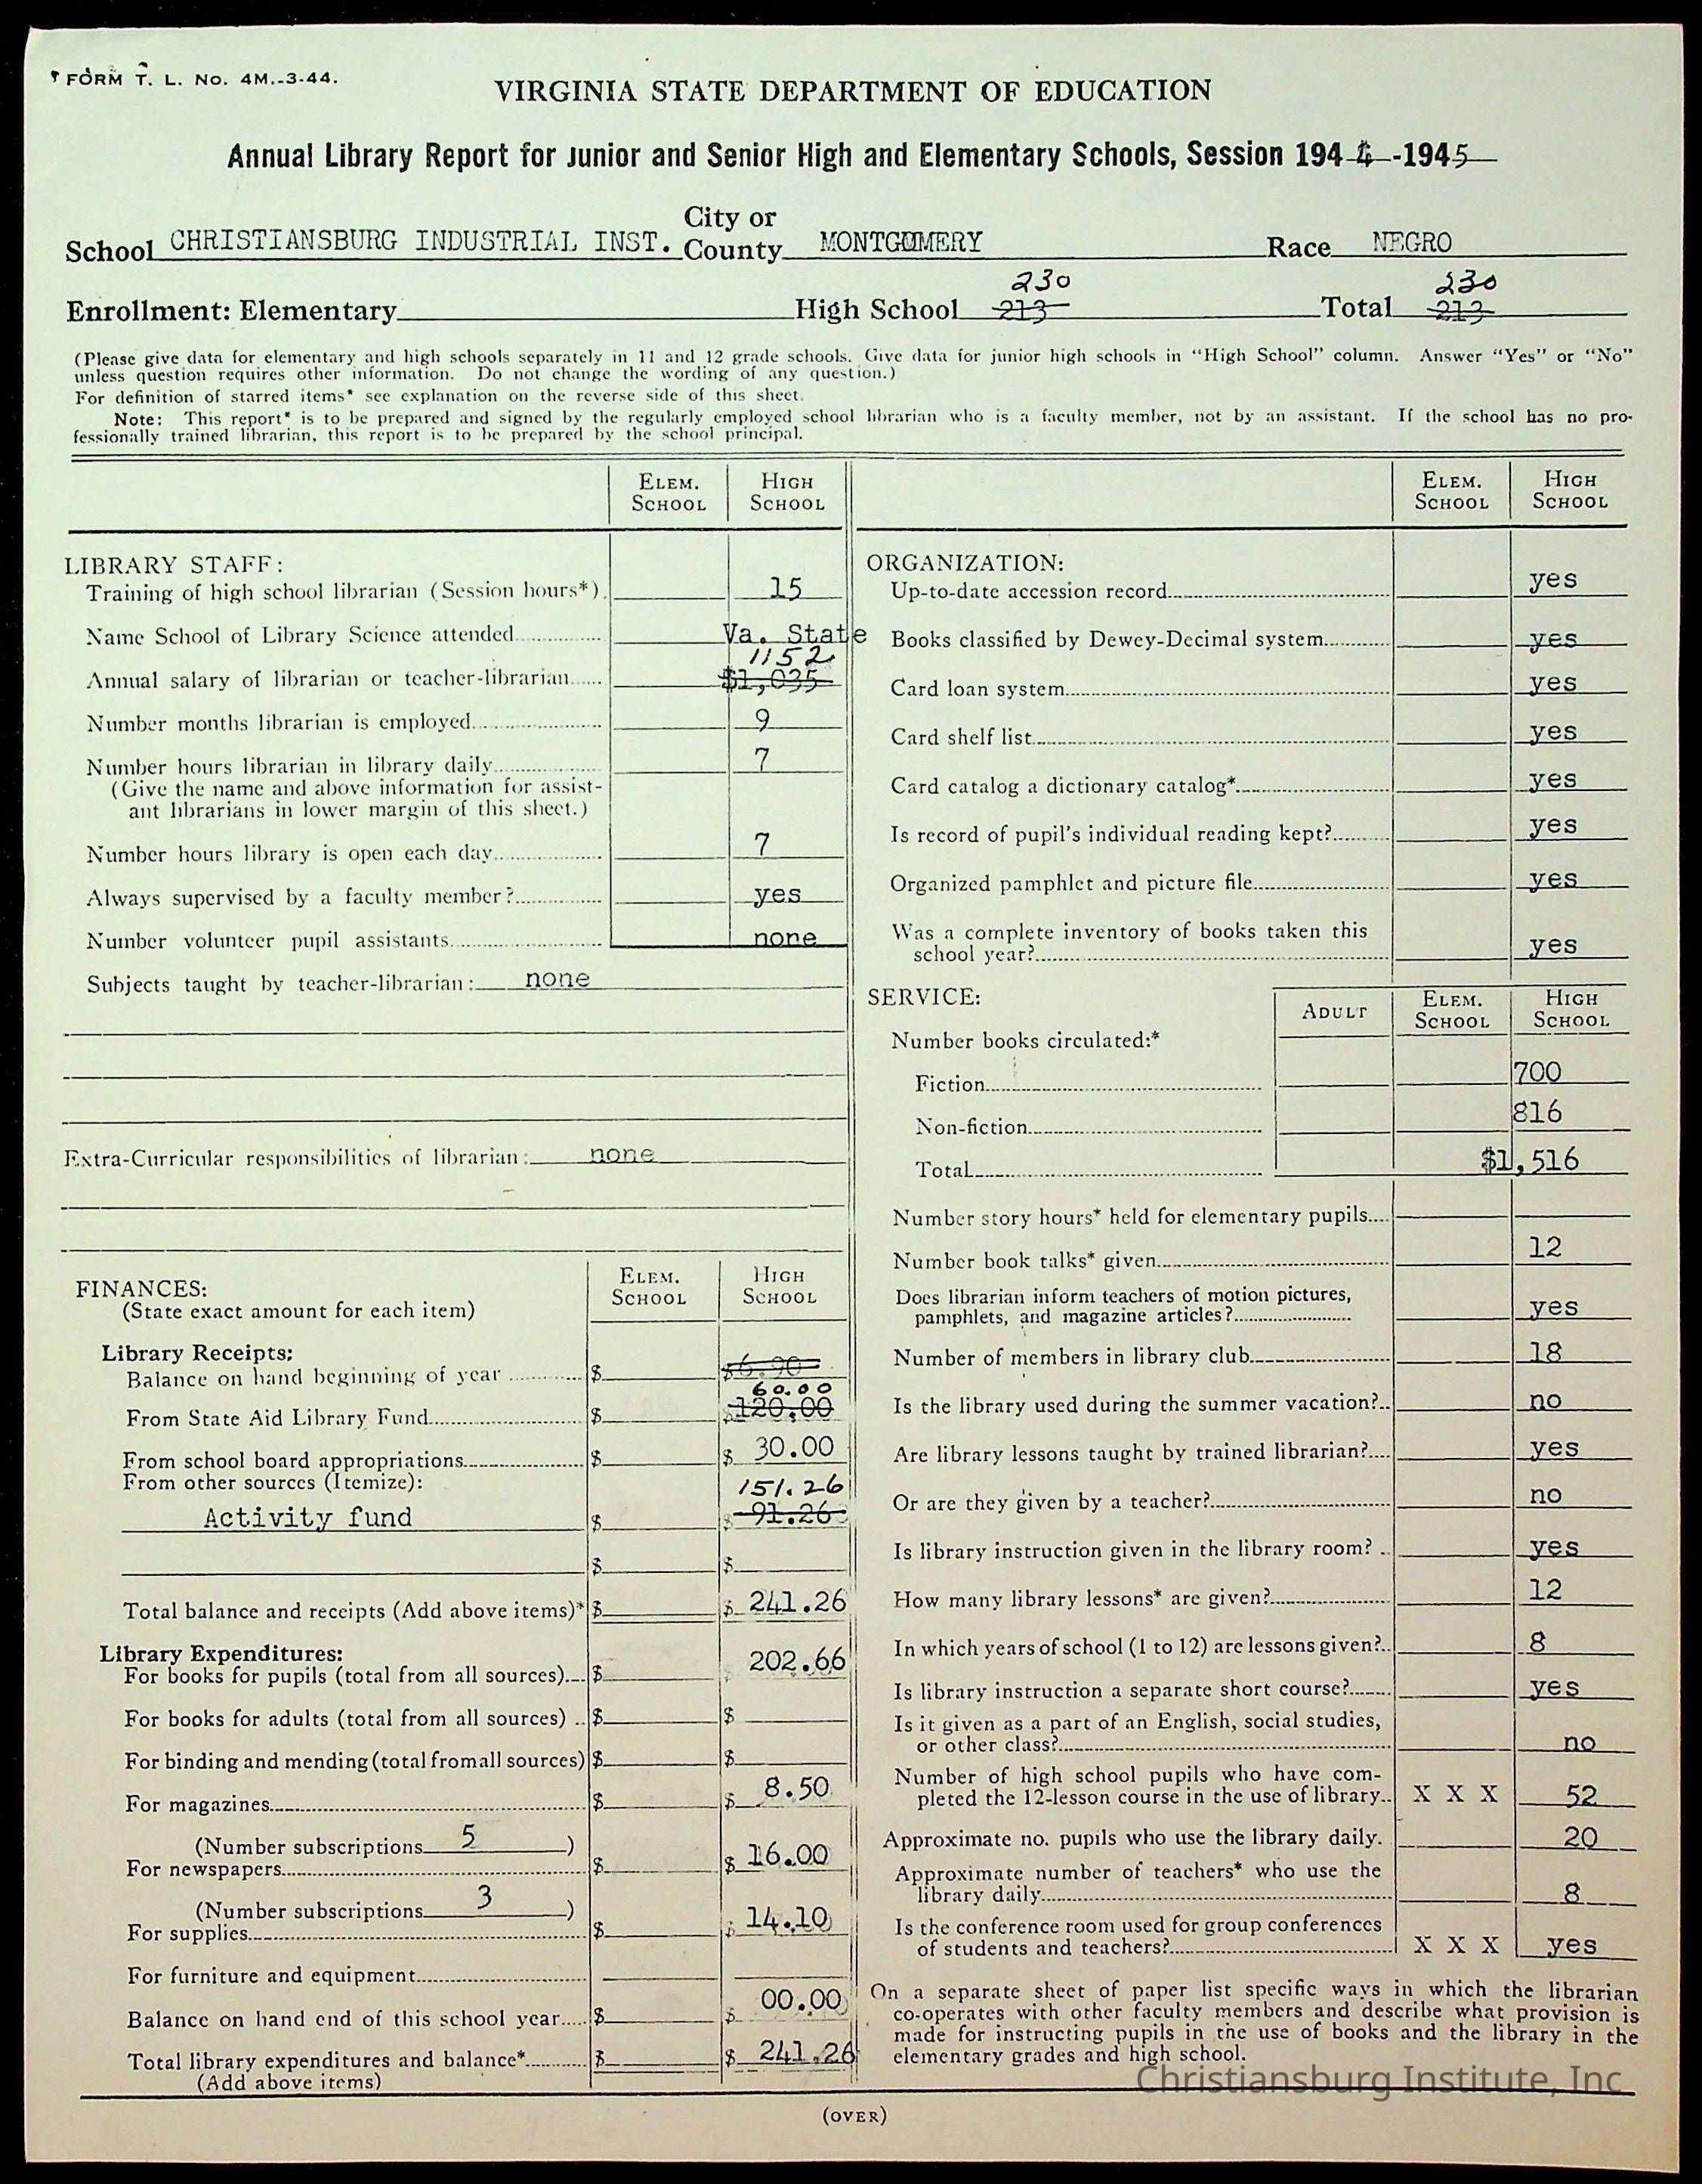 FORM T. L. No. 4M.-3-44.
VIRGINIA STATE DEPARTMENT OF EDUCATION
Annual Library Report for Junior and Senior High and Elementary Schools, Session 1944-1945
School CHRISTIANSBURG INDUSTRIAL INST. City or County MONTGOMERY Race NEGRO
230 230
Enrollment: Elementary High School 213 Total 213
(Please give data for elementary and high schools separately in 11 and 12 grade schools. Give data for junior high schools in "High School" column. Answer "Yes" or "No"
unless question requires other information. Do not change the wording of any question.)
For definition of starred items* see explanation on the reverse side of this sheet.
Note: This report* is to be prepared and signed by the regularly employed school librarian who is a faculty member, not by an assistant. If the school has no pro-
fessionally trained librarian, this report is to be prepared by the school principal.
ELEM. SCHOOL HIGH SCHOOL
LIBRARY STAFF:
Training of high school librarian (Session hours*) 15
Name School of Library Science attended Va. State
1152
Annual salary of librarian or teacher-librarian $1,035
Number months librarian is employed 9
Number hours librarian in library daily 7
(Give the name and above information for assist-
ant librarians in lower margin of this sheet.)
Number hours library is open each day 7
Always supervised by a faculty member? yes
Number volunteer pupil assistants none
Subjects taught by teacher-librarian: none
Extra-Curricular responsibilities of librarian: none
FINANCES: ELEM. SCHOOL HIGH SCHOOL
(State exact amount for each item)
Library Receipts:
Balance on hand beginning of year $ $6.90
60.00
From State Aid Library Fund $ $120.00
From school board appropriations $ $ 30.00
From other sources (Itemize):
151.26
Activity fund $ $ 91.26
$ $
Total balance and receipts (Add above items)* $ $ 241.26
Library Expenditures:
For books for pupils (total from all sources) $ 202.66
For books for adults (total from all sources) $ $
For binding and mending (total from all sources) $ $
For magazines $ $ 8.50
(Number subscriptions 5)
For newspapers $ $ 16.00
(Number subscriptions 3)
For supplies $ $ 14.10
For furniture and equipment
Balance on hand end of this school year $ $ 00.00
Total library expenditures and balance* $ $ 241.26
(Add above items)
ELEM. SCHOOL HIGH SCHOOL
ORGANIZATION:
Up-to-date accession record yes
Books classified by Dewey-Decimal system yes
Card loan system yes
Card shelf list yes
Card catalog a dictionary catalog* yes
Is record of pupil's individual reading kept? yes
Organized pamphlet and picture file yes
Was a complete inventory of books taken this
school year? yes
SERVICE: ADULT ELEM. SCHOOL HIGH SCHOOL
Number books circulated:*
Fiction 700
Non-fiction 816
Total $1,516
Number story hours* held for elementary pupils
Number book talks* given 12
Does librarian inform teachers of motion pictures,
pamphlets, and magazine articles? yes
Number of members in library club 18
Is the library used during the summer vacation? no
Are library lessons taught by trained librarian? yes
Or are they given by a teacher? no
Is library instruction given in the library room? yes
How many library lessons* are given? 12
In which years of school (1 to 12) are lessons given? 8
Is library instruction a separate short course? yes
Is it given as a part of an English, social studies,
or other class? no
Number of high school pupils who have com-
pleted the 12-lesson course in the use of library X X X 52
Approximate no. pupils who use the library daily. 20
Approximate number of teachers* who use the
library daily 8
Is the conference room used for group conferences
of students and teachers? X X X yes
On a separate sheet of paper list specific ways in which the librarian
co-operates with other faculty members and describe what provision is
made for instructing pupils in the use of books and the library in the
elementary grades and high school.
Christiansburg Institute, Inc
(OVER)